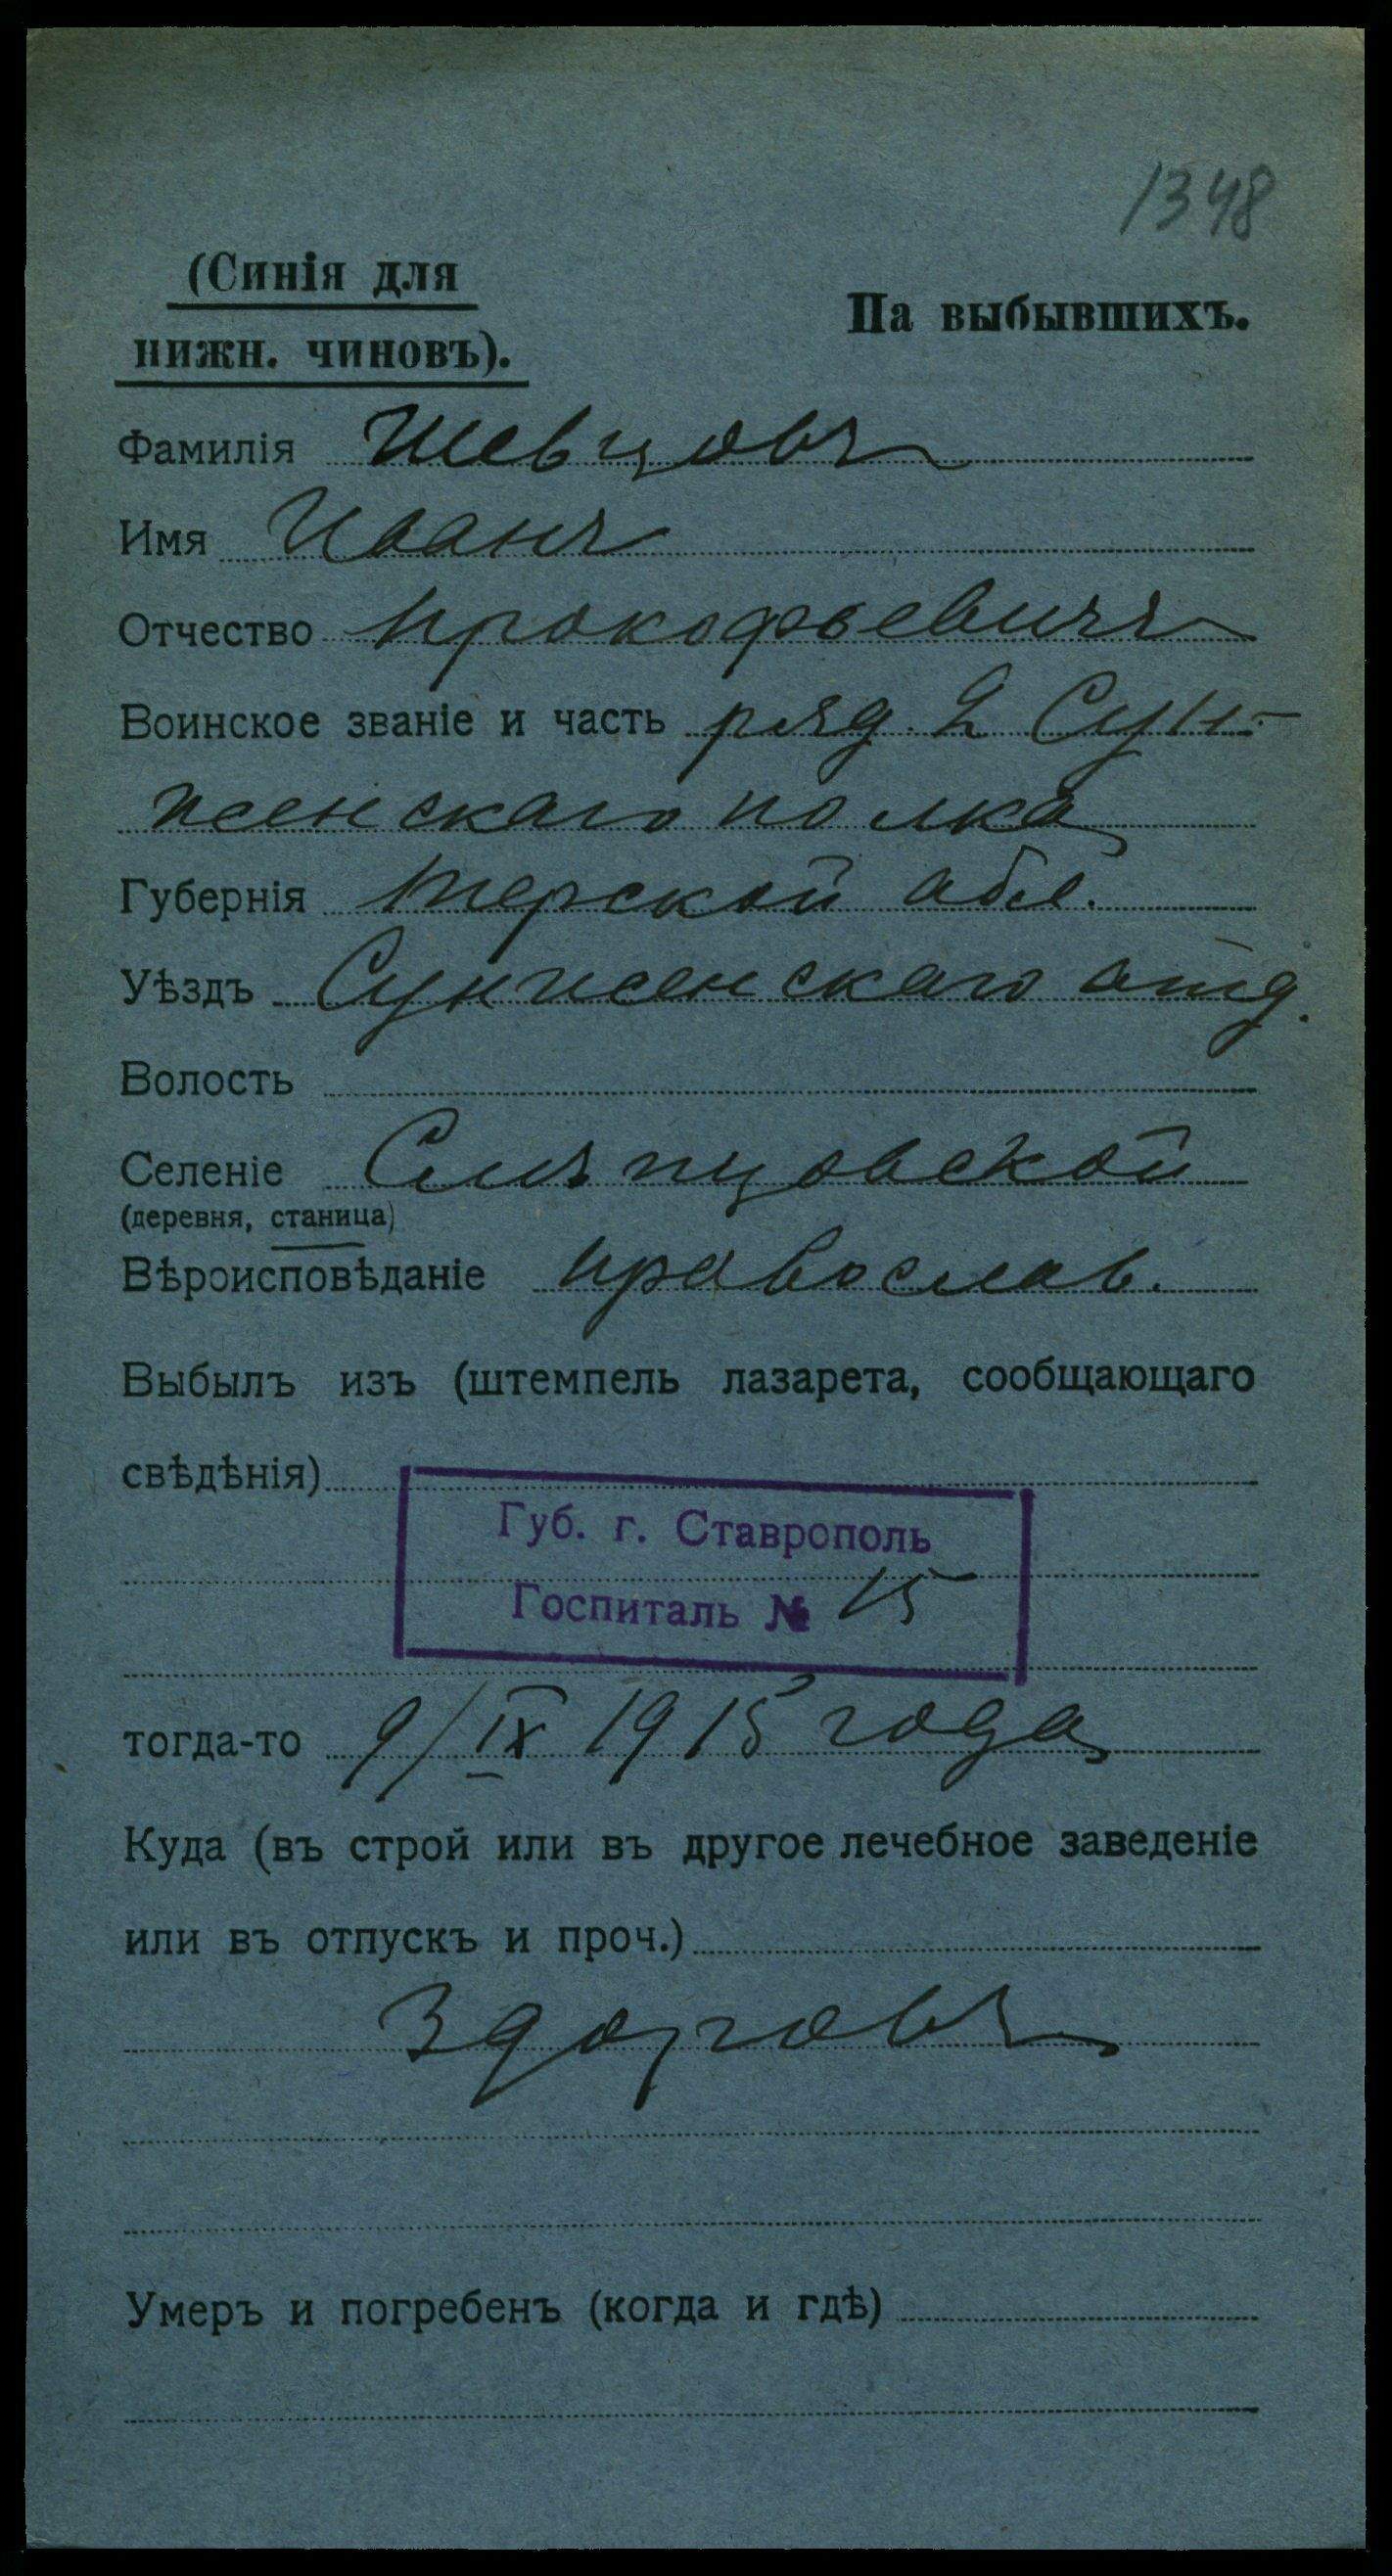 1348
(Синія для
нижн. чиновъ).
На выбывшихъ.
Фамилія Шевцовъ
Имя Иванъ
Отчество Прокофьевичъ
Воинское званіе и часть ряд. 2 Сун-
женскаго полка
Губернія Терской обл.
Уѣздъ Сунженскаго отд.
Волость
Селеніе Слѣпцовской
(деревня, станица)
Вѣроисповѣданіе православ.
Выбылъ изъ (штемпель лазарета, сообщающаго
свѣдѣнія)
Губ. г. Ставрополь
Госпиталь № 15
тогда-то 9/IX 1915 года
Куда (въ строй или въ другое лечебное заведеніе
или въ отпускъ и проч.)
Здоровъ
Умеръ и погребенъ (когда и гдѣ)